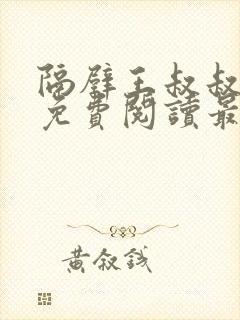 隔壁王叔叔
免費閱讀最
黃敘錢